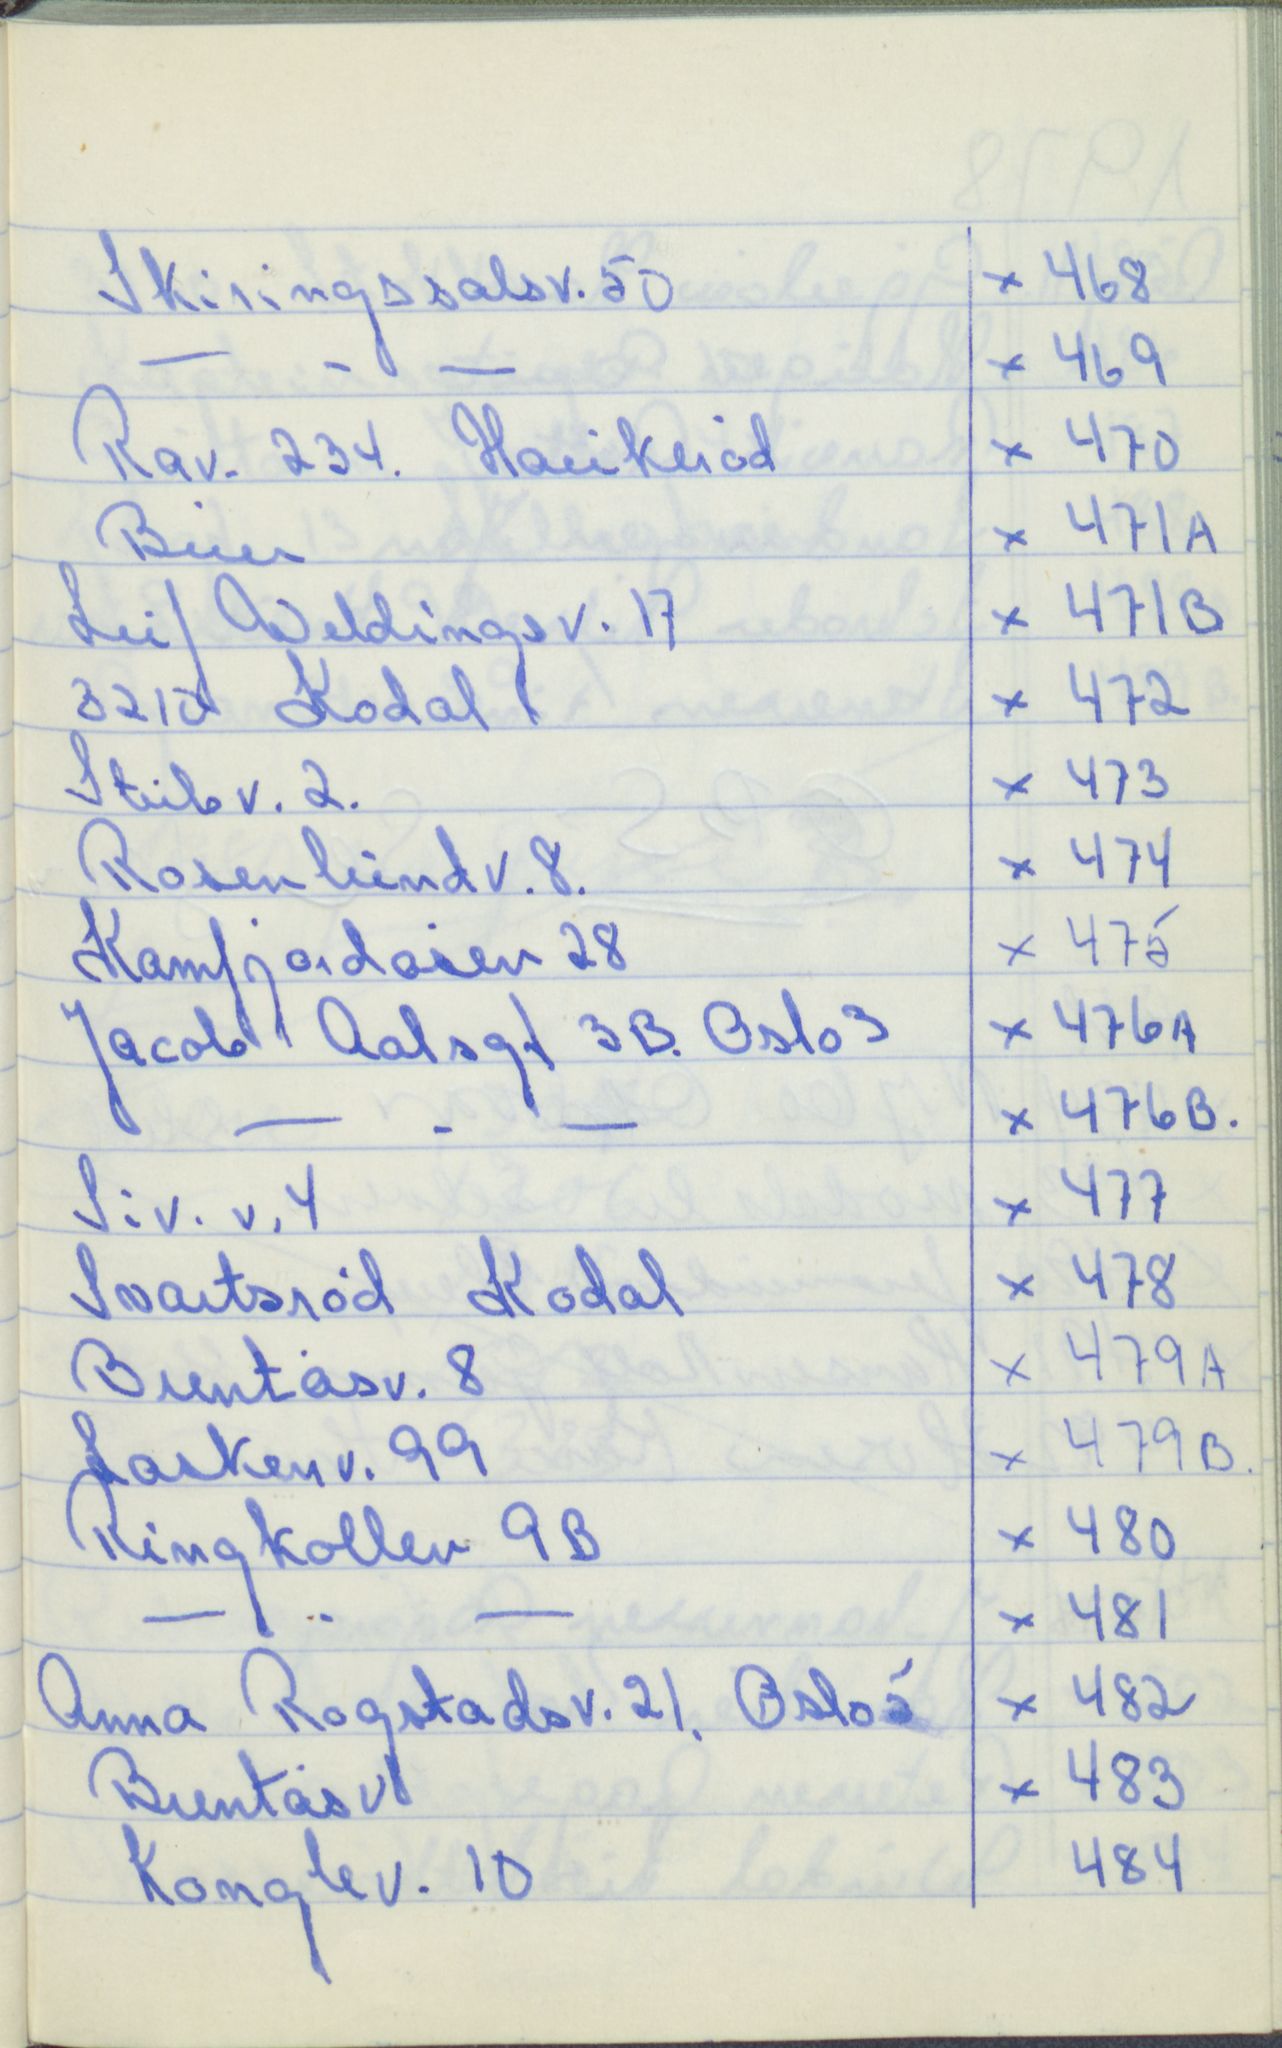 Skiringssalsv. 50 × 468
— - — × 469
Rav. 234. Haukerød × 470
Buer × 471A
Leif Weldingsv. 17 × 471B
3210 Kodal × 472
Stubv. 2. × 473
Rosenlundv. 8. × 474
Kamfjordåsen 28 × 475
Jacob Aalsgt 3B. Oslo 3 × 476A
— - — × 476B.
Siv. v. 4 × 477
Svartsrød Kodal × 478
Buentåsv. 8 × 479A
Laskenv. 99 × 479B.
Ringkollen 9B × 480
— - — × 481
Anna Rogstadsv. 21. Oslo 5 × 482
Buentåsv × 483
Konglev. 10 484